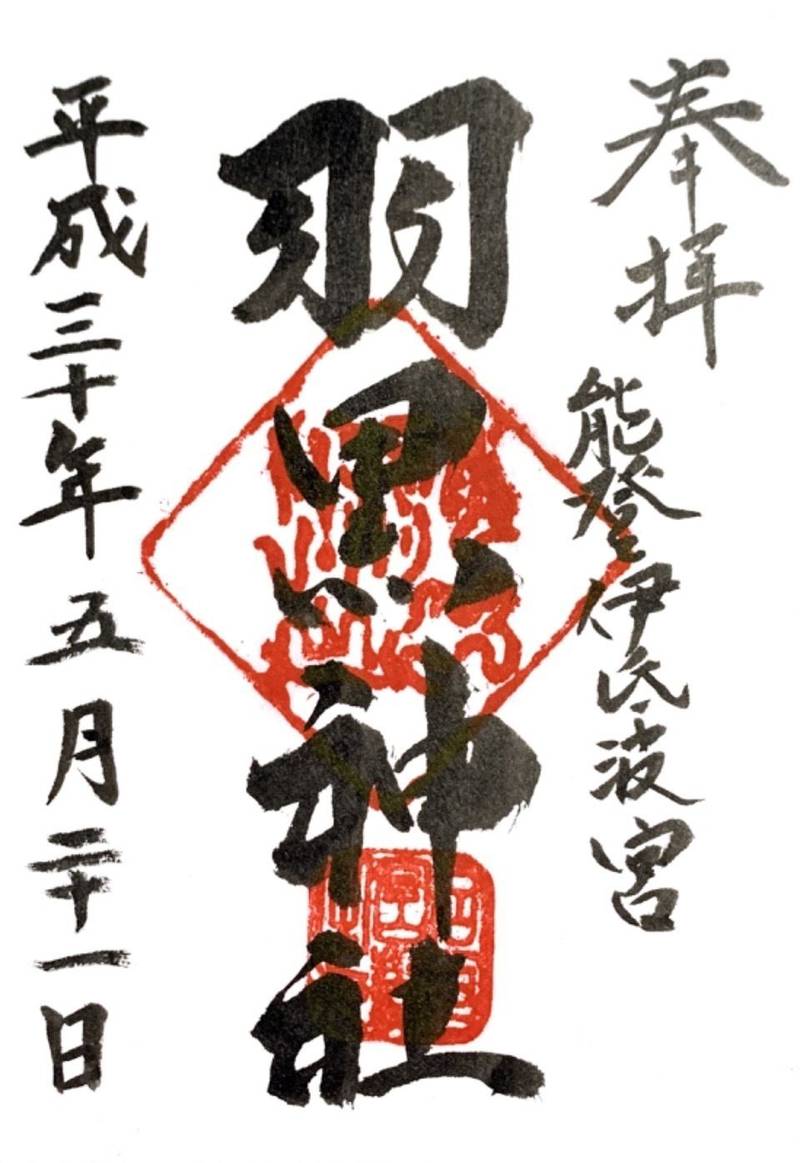 奉拝
能登伊氏波宮
羽黒神社
平成三十年五月二十一日